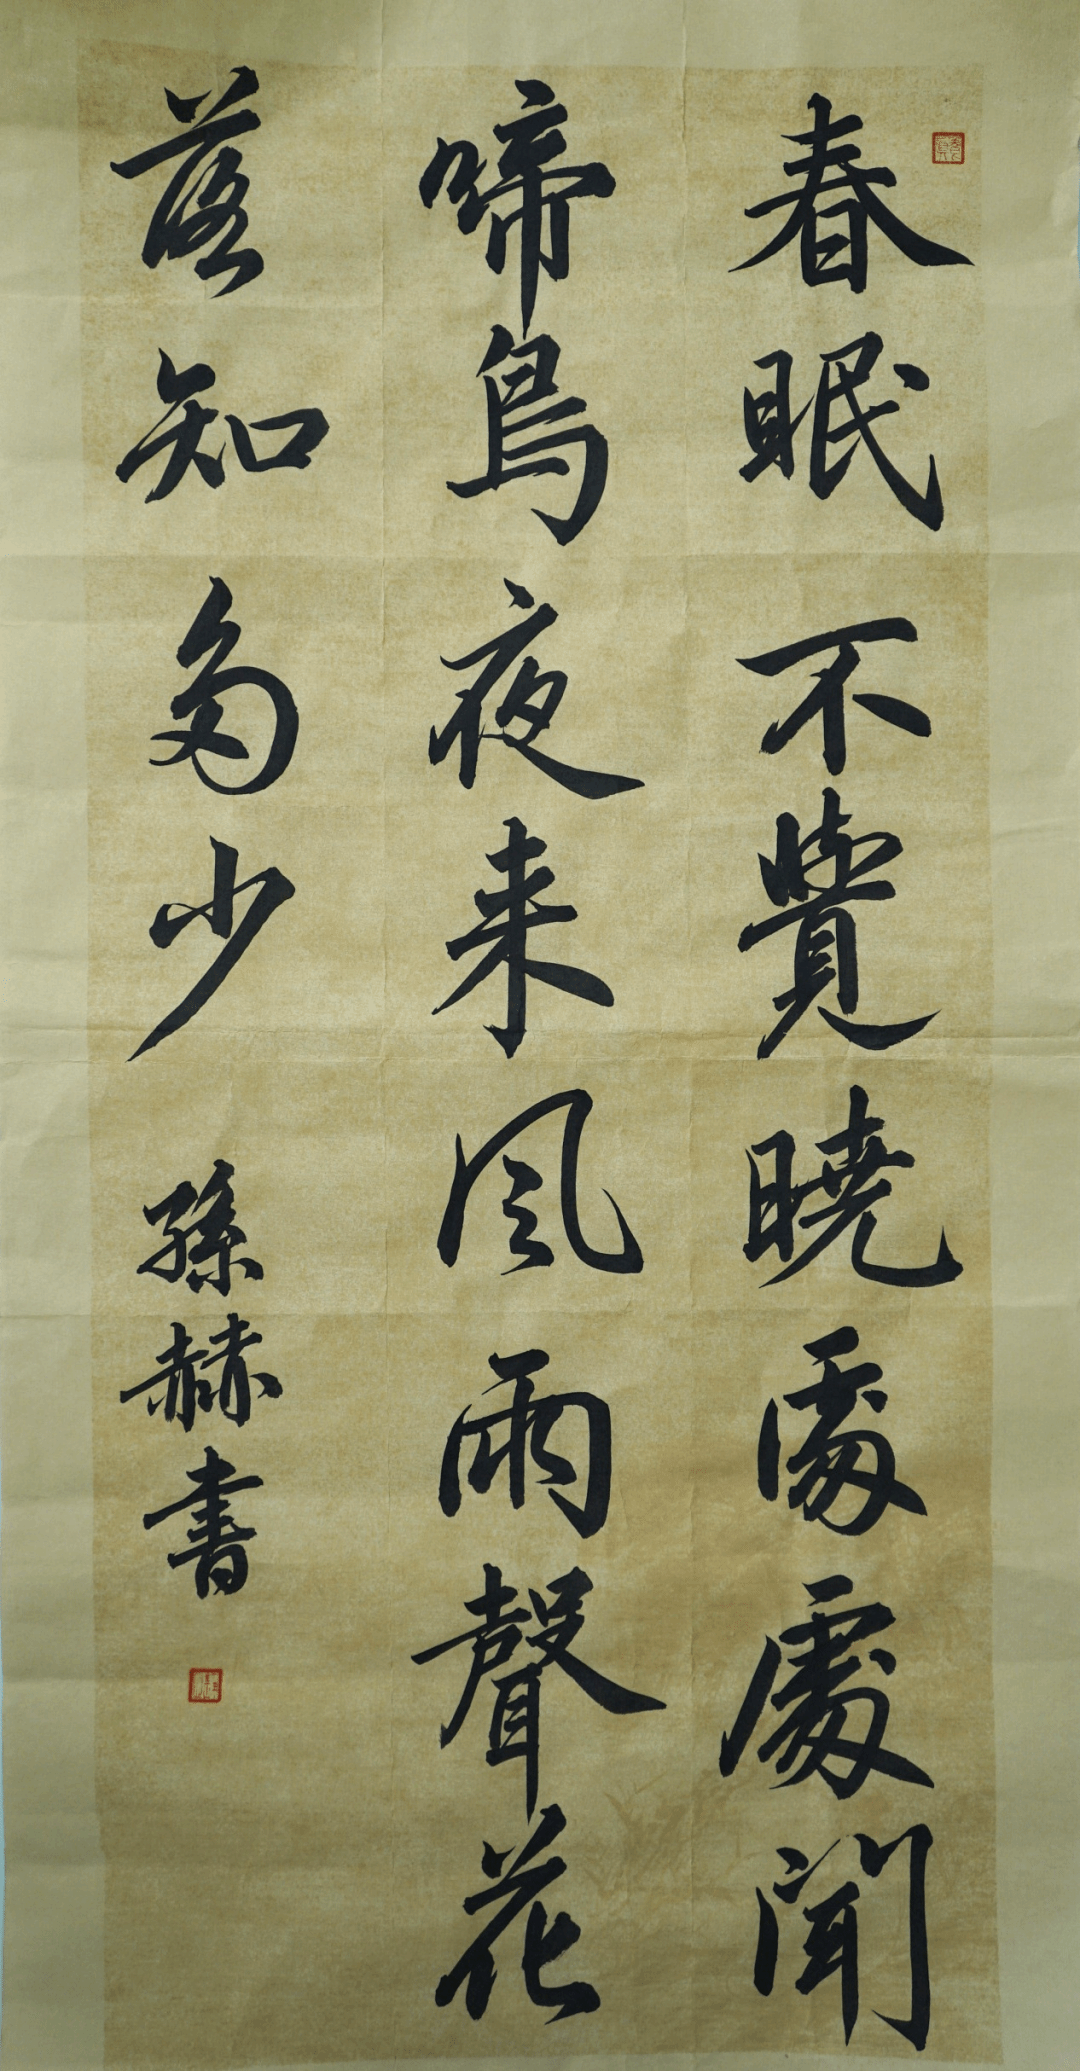 春眠不覺曉處處聞
啼鳥夜来風雨聲花
落知多少
孫赫書